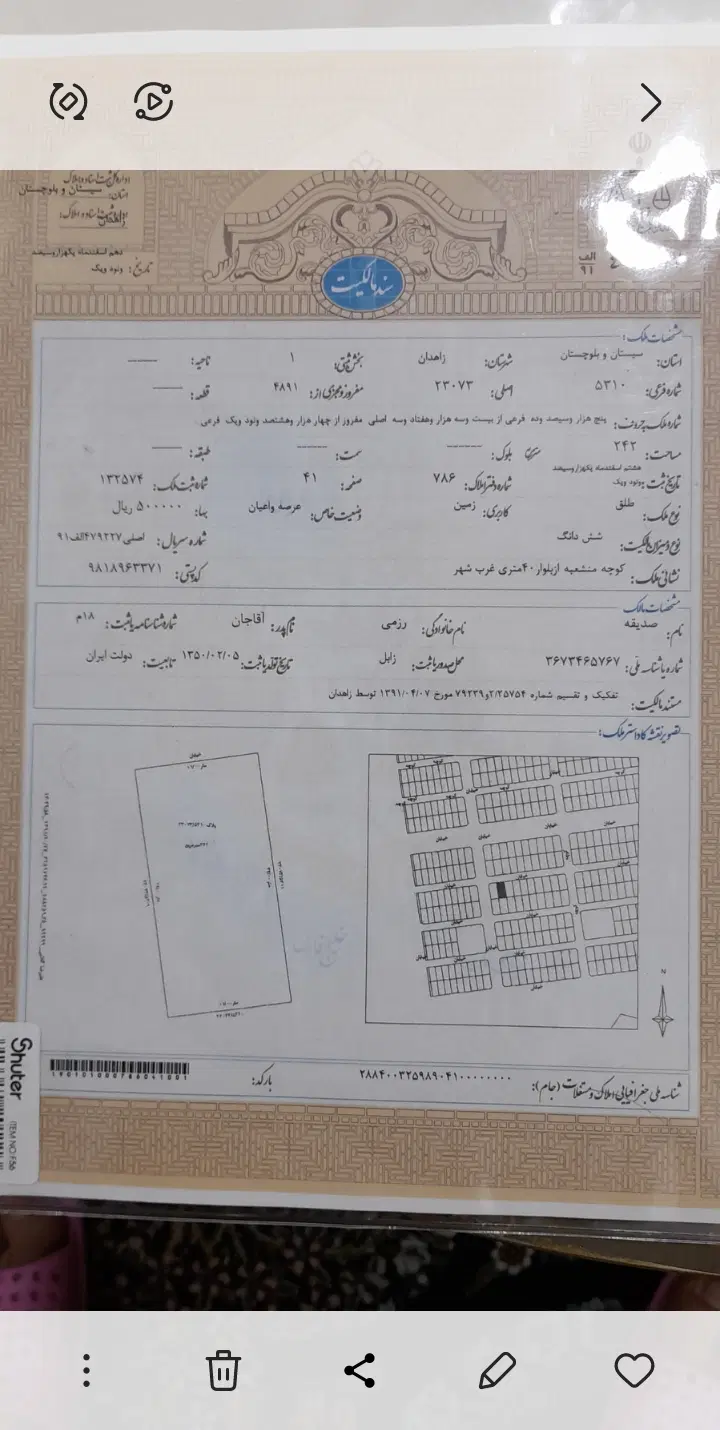 سیستان و بلوچستان
استان:
دهم اسفندماه یکهزاروسیصد
تاریخ: ونود ویک
الف
۹۱
سند مالکیت
مشخصات ملک:
استان: سیستان و بلوچستان شهرستان: زاهدان بخش ثبتی: ۱ ناحیه:
شماره فرعی: ۵۳۱۰ اصلی: ۲۳۰۷۳ مفروز و مجزی از: ۴۸۹۱ قطعه:
شماره ملک بحروف: پنج هزار وسیصد وده فرعی از بیست وسه هزار وهفتاد وسه اصلی مفروز از چهار هزار وهشتصد ونود ویک فرعی
مساحت: ۲۴۲ بلوک: سمت: طبقه:
تاریخ ثبت: هشتم اسفندماه یکهزاروسیصد ونود ویک شماره دفتر املاک: ۷۸۶ صفحه: ۴۱ شماره ثبت ملک: ۱۳۲۵۷۴
نوع ملک: طلق کاربری: زمین وضعیت خاص: عرصه واعیان بهاء: ۵۰۰۰۰۰ ریال
نوع و میزان مالکیت: شش دانگ شماره سریال: اصلی۴۷۹۲۲۷الف۹۱
نشانی ملک: کوچه منشعبه ازبلوار۴۰متری غرب شهر کدپستی: ۹۸۱۸۹۶۳۳۷۱
مشخصات مالک
نام: صدیقه نام خانوادگی: رزمی نام پدر: آقاجان شماره شناسنامه یا ثبت: ۱۸م
شماره یا شناسه ملی: ۳۶۷۳۴۶۵۷۶۷ محل صدور یا ثبت: زابل تاریخ تولد یا ثبت: ۱۳۵۰/۰۲/۰۵ تابعیت: دولت ایران
مستند مالکیت: تفکیک و تقسیم شماره ۲/۲۵۷۵۴و۷۹۲۳۹ مورخ ۱۳۹۱/۰۴/۰۷ توسط زاهدان
تصویر نقشه کاداستر ملک:
خیابان
N
بارکد:
شناسه ملی جغرافیایی املاک و مستغلات (جام): ۲۸۸۴۰۰۳۲۵۹۸۹۰۴۱۰۰۰۰۰۰۰۰۰
Shuter
ITEM NO:F56